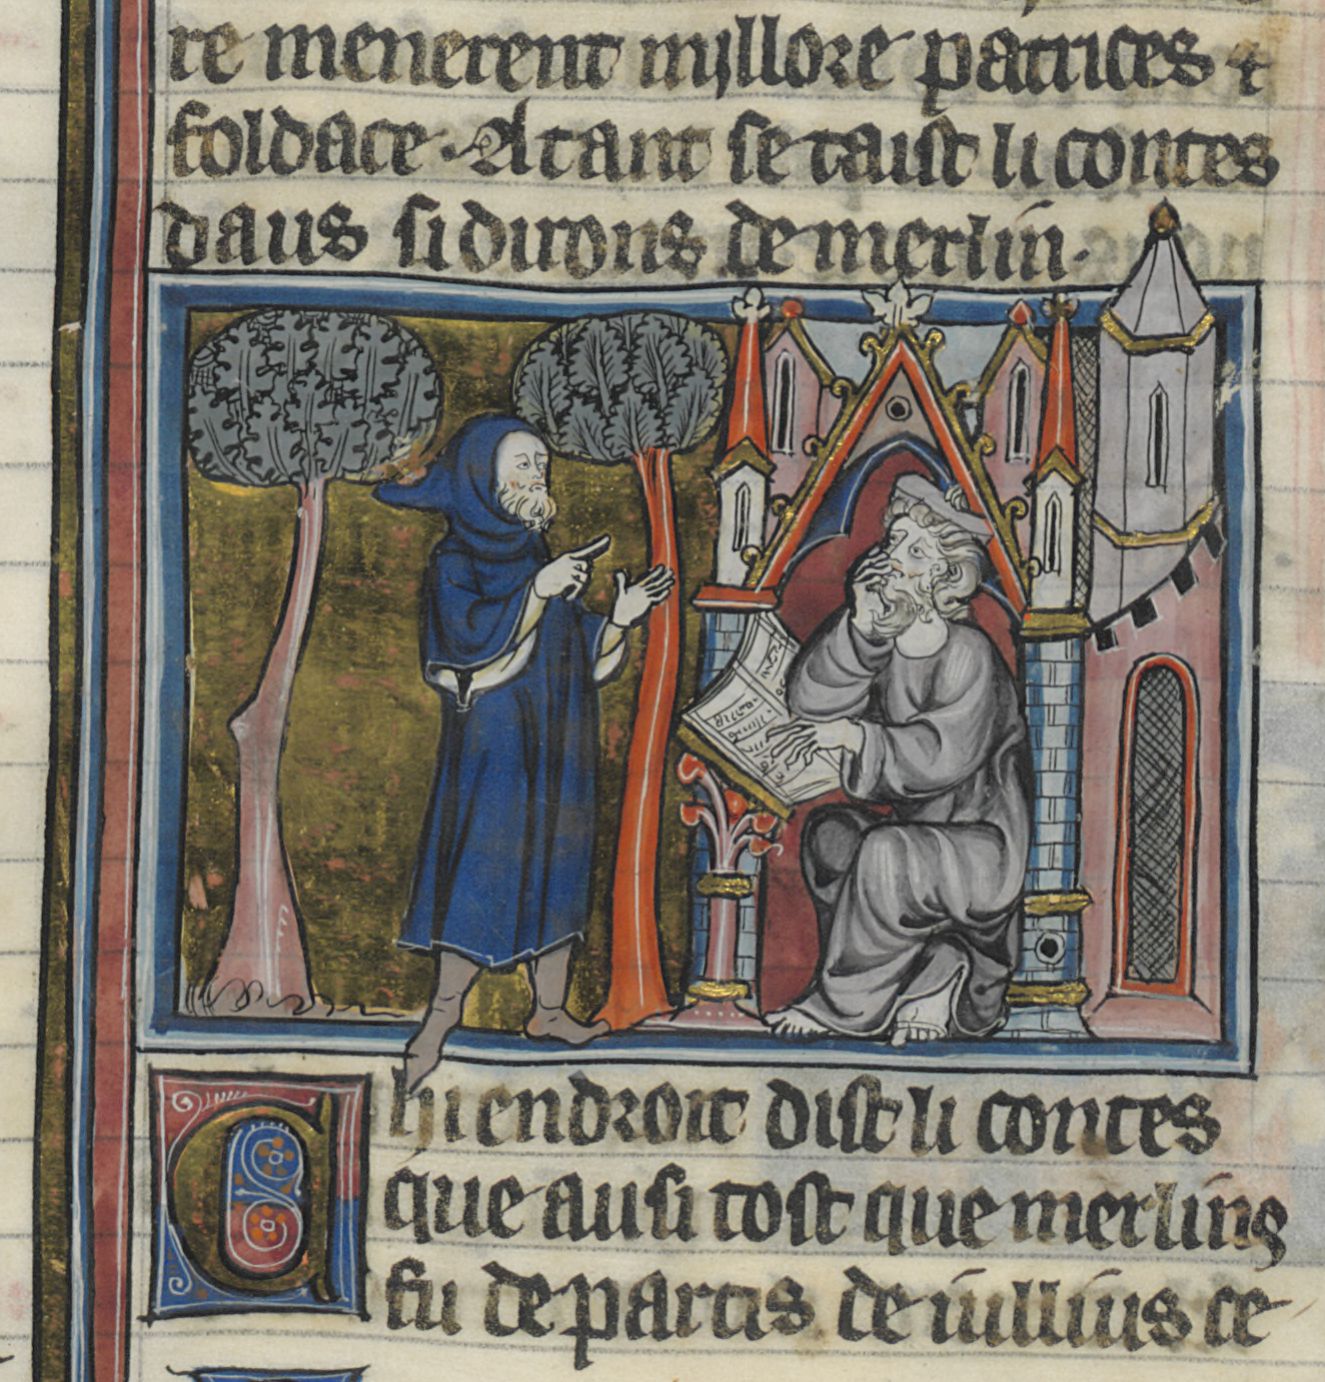 re menerent millore patrices ⁊
foldace. Atant se taist li contes
daus si dirons de merlin.
Chi endroit dist li contes
que ausi tost que merlins
fu departis de iullius ce